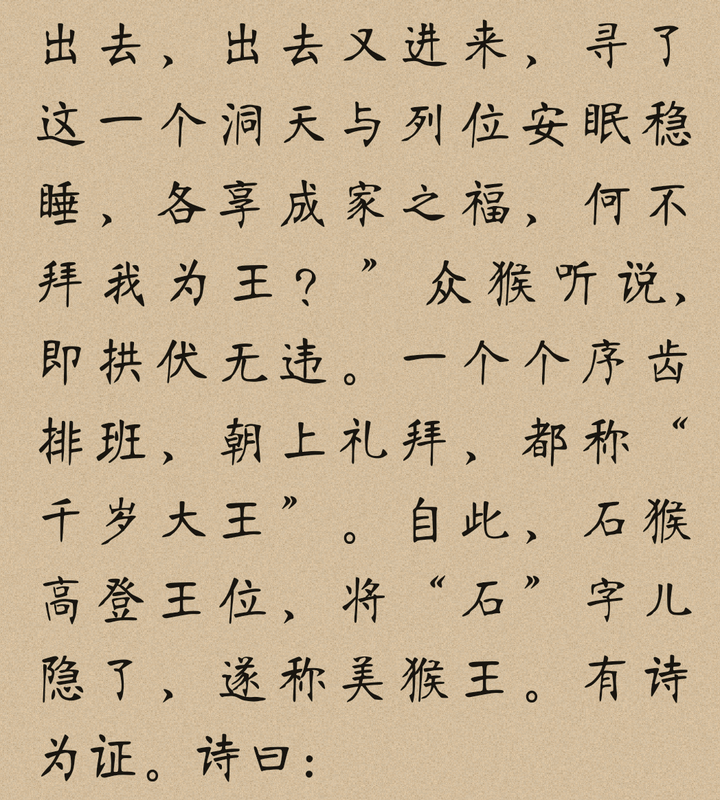 出去，出去又进来，寻了
这一个洞天与列位安眠稳
睡，各享成家之福，何不
拜我为王？”众猴听说，
即拱伏无违。一个个序齿
排班，朝上礼拜，都称“
千岁大王”。自此，石猴
高登王位，将“石”字儿
隐了，遂称美猴王。有诗
为证。诗曰：